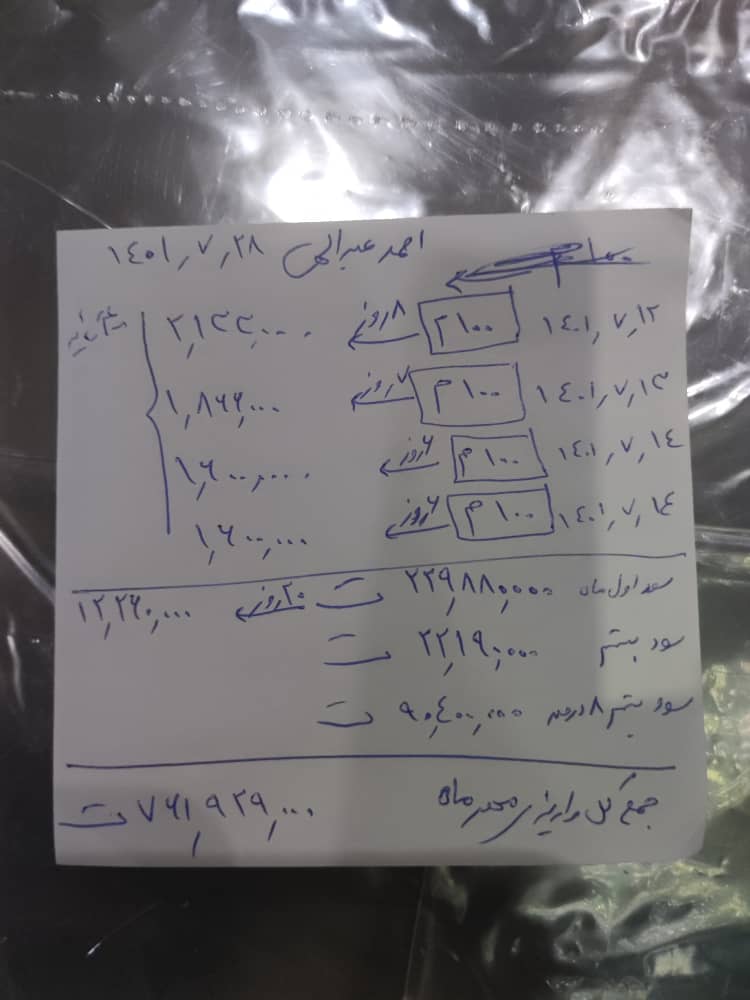 احمد عبدالهی ۱۴۰۱٫۷٫۲۸
۱۴۰۱٫۷٫۱۲ ۱۰۰م ۸روز ۲٫۱۳۳٫۰۰۰
۱۴۰۱٫۷٫۱۳ ۱۰۰م ۷روز ۱٫۸۶۶٫۰۰۰
۱۴۰۱٫۷٫۱۴ ۱۰۰م ۶روز ۱٫۶۰۰٫۰۰۰
۱۴۰۱٫۷٫۱۴ ۱۰۰م ۶روز ۱٫۶۰۰٫۰۰۰
سود اول ماه ۲۲۹٫۸۸۰٫۰۰۰ ت ۲۰روز ۱۲٫۲۶۰٫۰۰۰
سود بیستم ۲۲٫۱۹۰٫۰۰۰ ت
سود بیستم ۸درصد ۹۰٫۴۰۰٫۰۰۰ ت
جمع کل واریزی مهر ماه ۷۶۱٫۹۲۹٫۰۰۰ ت